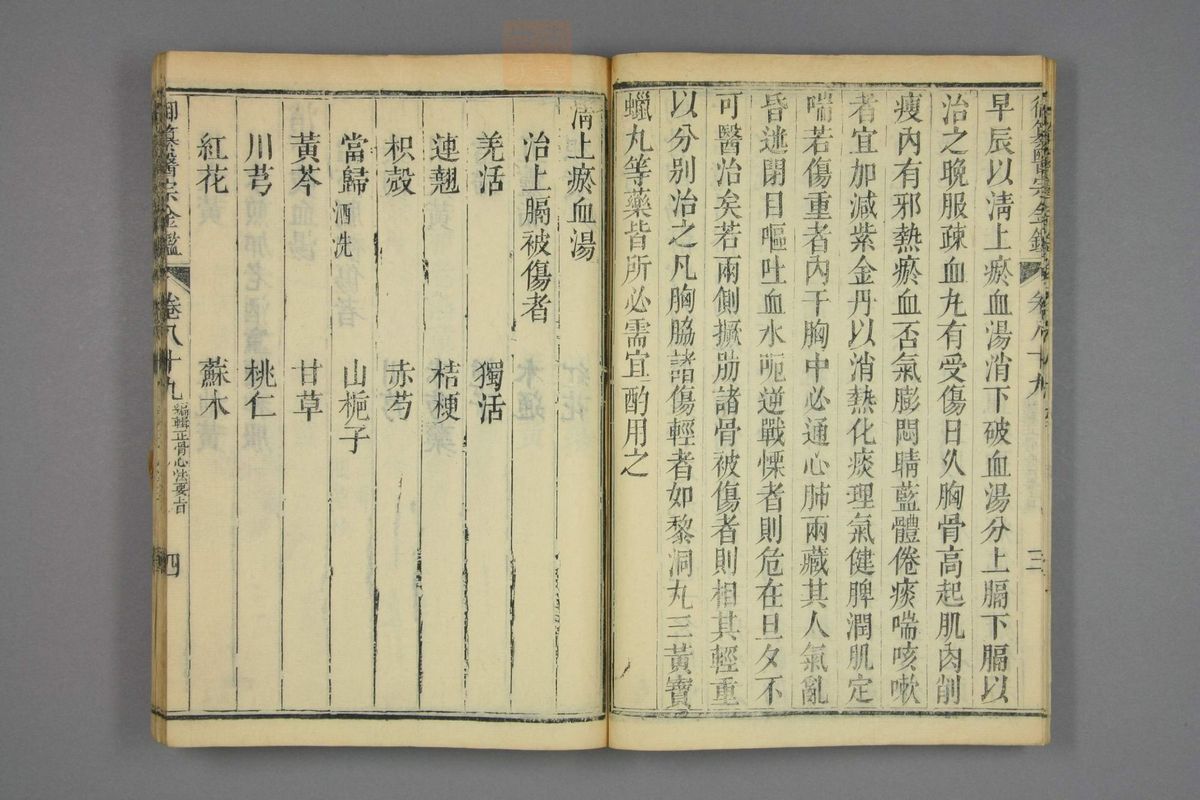 御纂醫宗金鑑 卷八十九 三
早辰以清上瘀血湯消下破血湯分上膈下膈以
治之晚服疎血丸有受傷日久胸骨高起肌肉削
瘦內有邪熱瘀血否氣膨悶睛藍體倦痰喘咳嗽
者宜加減紫金丹以消熱化痰理氣健脾潤肌定
喘若傷重者內干胸中必通心肺兩藏其人氣亂
昏迷閉目嘔吐血水呃逆戰慄者則危在旦夕不
可醫治矣若兩側撅肋諸骨被傷者則相其輕重
以分別治之凡胸脇諸傷輕者如黎洞丸三黃寶
蠟丸等藥皆所必需宜酌用之
清上瘀血湯
治上膈被傷者
羌活 獨活
連翹 桔梗
枳殼 赤芍
當歸酒洗 山梔子
黃芩 甘草
川芎 桃仁
紅花 蘇木
御纂醫宗金鑑 卷八十九 編輯正骨心法要旨 四